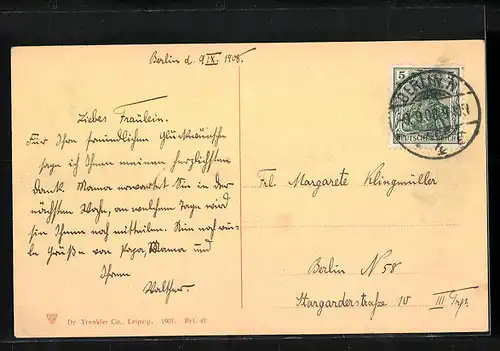 Berlin d. 9/IX. 1908.
5
BERLIN N
DEUTSCHES REICH
Liebes Fräulein.
Für Ihre freundlichen Glückwünsche
sage ich Ihnen meinen herzlichsten
Dank. Mama erwartet Sie in der
nächsten Woche, an welchem Tage wird
sie Ihnen noch mitteilen. Nun noch vie-
le Grüße von Papa, Mama und
Ihrem
Walther.
Frl. Margarete Klingmüller
Berlin N 58
Stargarderstraße 10 III Trp.
Dr. Trenkler Co., Leipzig. 1907. Brl. 47